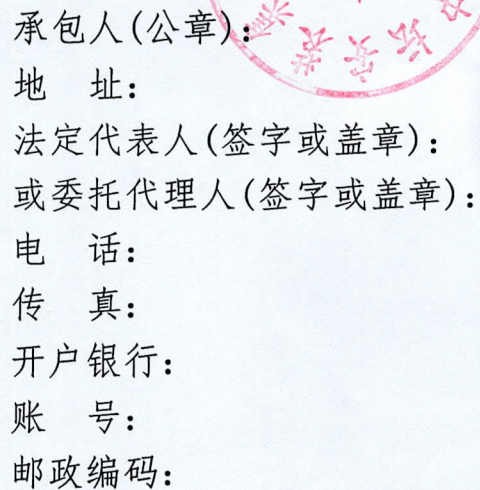 承包人(公章):
地　址:
法定代表人(签字或盖章):
或委托代理人(签字或盖章):
电　话:
传　真:
开户银行:
账　号:
邮政编码: